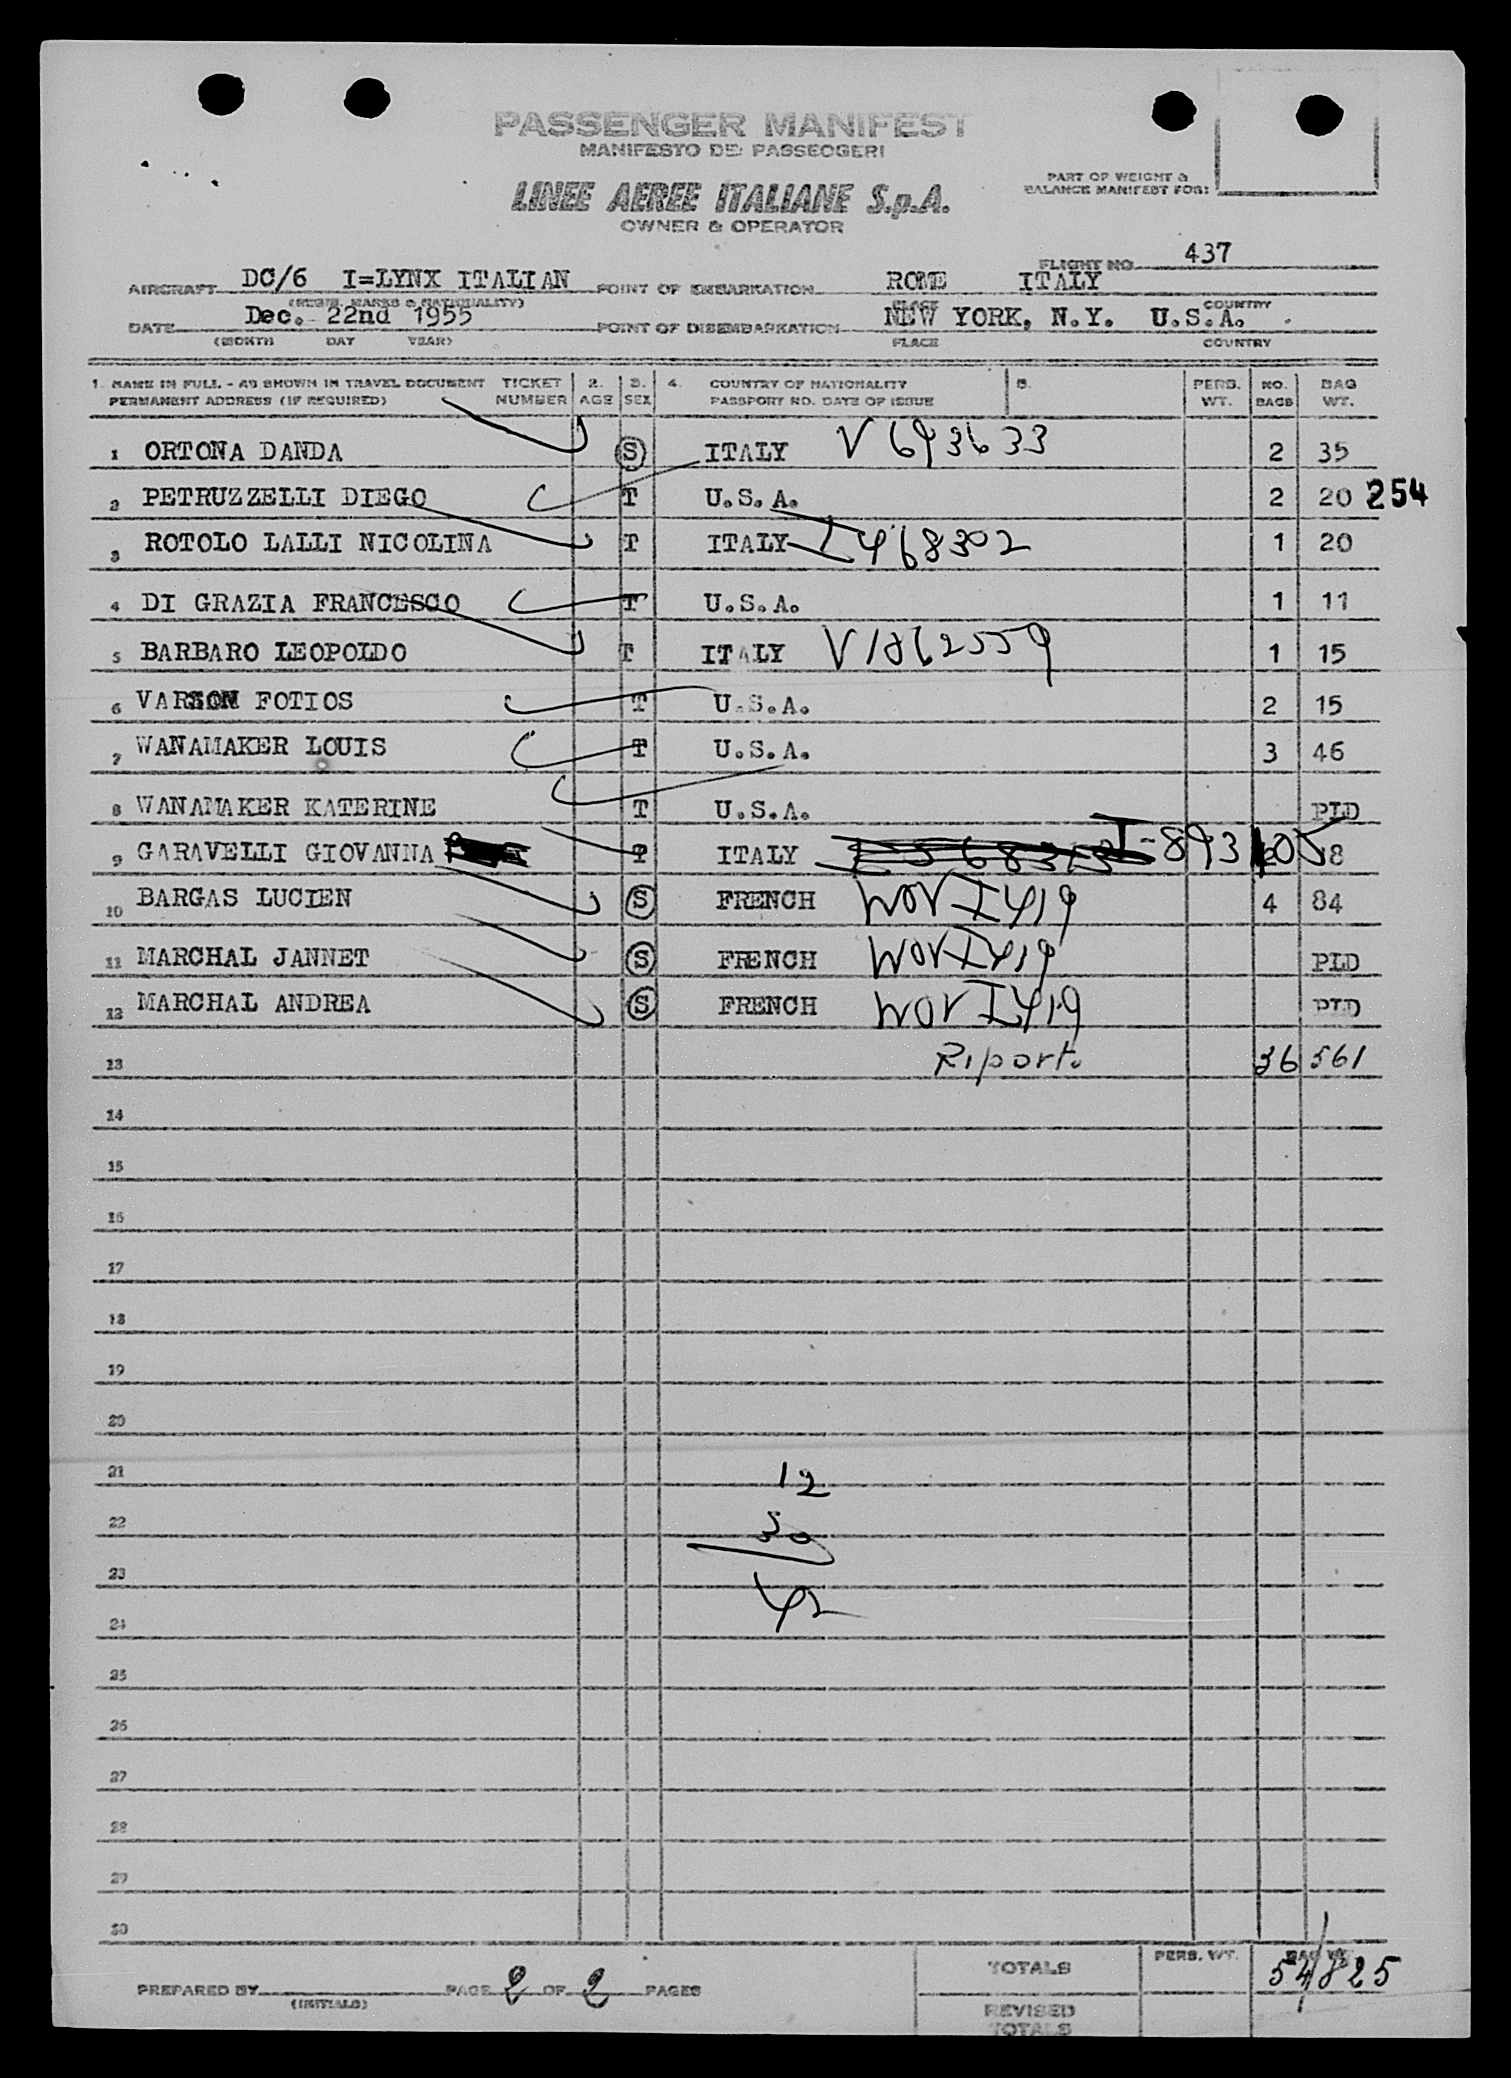 PASSENGER MANIFEST
MANIFESTO DEI PASSEGGERI
LINEE AEREE ITALIANE S.p.A.
OWNER & OPERATOR
PART OF WEIGHT &
BALANCE MANIFEST FOR:
FLIGHT NO. 437
AIRCRAFT DC/6 I=LYNX ITALIAN POINT OF EMBARKATION ROME ITALY
(REGIS. MARKS & NATIONALITY) PLACE COUNTRY
DATE Dec. 22nd 1955 POINT OF DISEMBARKATION NEW YORK, N.Y. U.S.A.
(MONTH DAY YEAR) PLACE COUNTRY
1. NAME IN FULL - AS SHOWN IN TRAVEL DOCUMENT TICKET 2. 3. 4. COUNTRY OF NATIONALITY 5. PERS. NO. BAG
PERMANENT ADDRESS (IF REQUIRED) NUMBER AGE SEX PASSPORT NO. DATE OF ISSUE WT. BAGS WT.
1 ORTONA DANDA S ITALY V 693633 2 35
2 PETRUZZELLI DIEGO T U.S.A. 2 20 254
3 ROTOLO LALLI NICOLINA T ITALY I 468302 1 20
4 DI GRAZIA FRANCESCO T U.S.A. 1 11
5 BARBARO LEOPOLDO T ITALY V 1862559 1 15
6 FOTIOS T U.S.A. 2 15
7 WANAMAKER LOUIS T U.S.A. 3 46
8 WANAMAKER KATERINE T U.S.A. PLD
9 GARAVELLI GIOVANNA T ITALY I-893105 2 18
10 BARGAS LUCIEN S FRENCH WOV I419 4 84
11 MARCHAL JANNET S FRENCH WOV I419 PLD
12 MARCHAL ANDREA S FRENCH WOV I419 PLD
13 Riport. 36 561
14
15
16
17
18
19
20
21 12
22 30
23
24 42
25
26
27
28
29
30
TOTALS PERS. WT. BAG WT. 54/825
PREPARED BY PAGE 2 OF 2 PAGES
(INITIALS)
REVISED
TOTALS